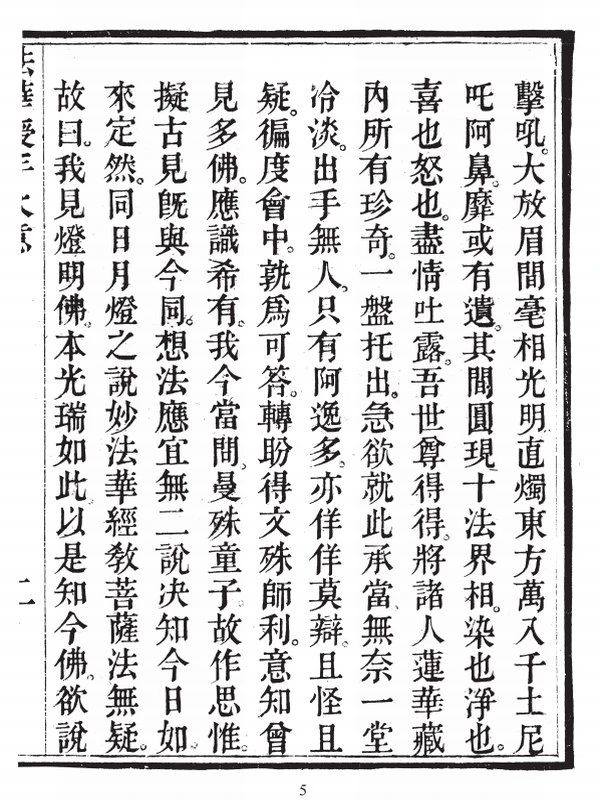 擊吼。大放眉間毫相光明直燭東方萬八千土尼
吒阿鼻。靡或有遺。其間圓現十法界相。染也淨也。
喜也怒也。盡情吐露。吾世尊得得。將諸人蓮華藏
內所有珍奇。一盤托出。急欲就此承當、無奈一堂
冾淡。出手無人。只有阿逸多。亦佯佯莫辯。且怪且
疑。徧度會中。孰爲可答。轉盼得文殊師利。意知曾
見多佛。應識希有。我今當問、曼殊童子。故作思惟。
擬古見旣與今同。想法應宜無二說決知今日如
來定然。同日月燈之說妙法華經敎菩薩法無疑。
故曰。我見燈明佛。本光瑞如此以是知今佛。欲說
法華授手大意 二
5